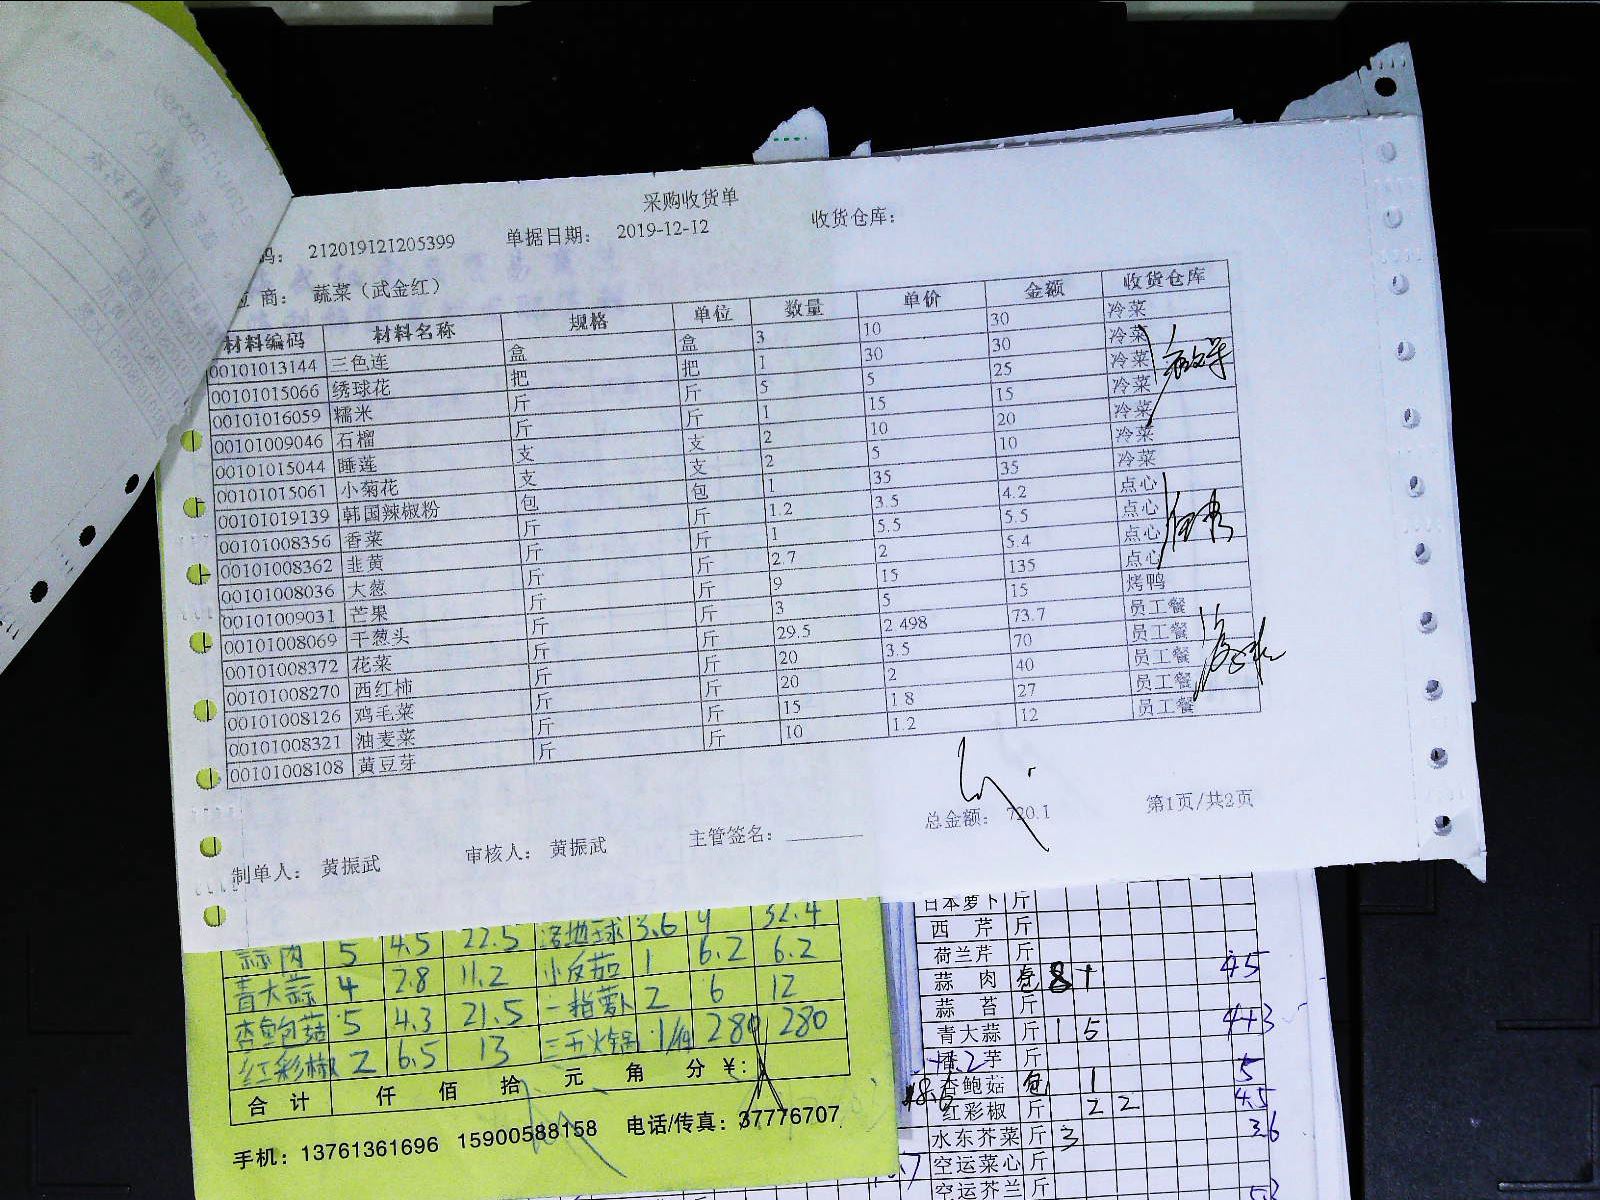 采购收货单
码： 212019121205399 单据日期： 2019-12-12 收货仓库：
应 商： 蔬菜（武金红）
材料编码 材料名称 规格 单位 数量 单价 金额 收货仓库
00101013144 三色连 盒 盒 3 10 30 冷菜
00101015066 绣球花 把 把 1 30 30 冷菜
00101016059 糯米 斤 斤 5 5 25 冷菜
00101009046 石榴 斤 斤 1 15 15 冷菜
00101015044 睡莲 支 支 2 10 20 冷菜
00101015061 小菊花 支 支 2 5 10 冷菜
00101019139 韩国辣椒粉 包 包 1 35 35 冷菜
00101008356 香菜 斤 斤 1.2 3.5 4.2 点心
00101008362 韭黄 斤 斤 1 5.5 5.5 点心
00101008036 大葱 斤 斤 2.7 2 5.4 点心
00101009031 芒果 斤 斤 9 15 135 点心
00101008069 干葱头 斤 斤 3 5 15 烤鸭
00101008372 花菜 斤 斤 29.5 2 498 73.7 员工餐
00101008270 西红柿 斤 斤 20 3.5 70 员工餐
00101008126 鸡毛菜 斤 斤 20 2 40 员工餐
00101008321 油麦菜 斤 斤 15 1 8 27 员工餐
00101008108 黄豆芽 斤 斤 10 1 2 12 员工餐
总金额： 720.1 第1页/共2页
制单人： 黄振武 审核人： 黄振武 主管签名：
蒜肉 5 4.5 22.5 落地球 3.6 9 32.4
青大蒜 4 2.8 11.2 小皮茄 1 6.2 6.2
杏鲍菇 5 4.3 21.5 一指萝卜 2 6 12
红彩椒 2 6.5 13 280 280
合 计 仟 佰 拾 元 角 分 ￥:
手机：13761361696 15900588158 电话/传真：37776707
日本萝卜 斤
西 芹 斤
荷兰芹 斤
蒜 肉 8 45
蒜 苔 斤
青大蒜 斤 1 5
芋 斤
杏鲍菇 包 1 5
红彩椒 斤 2 2 45
水东芥菜 斤 3 36
空运菜心 斤
空运芥兰 斤